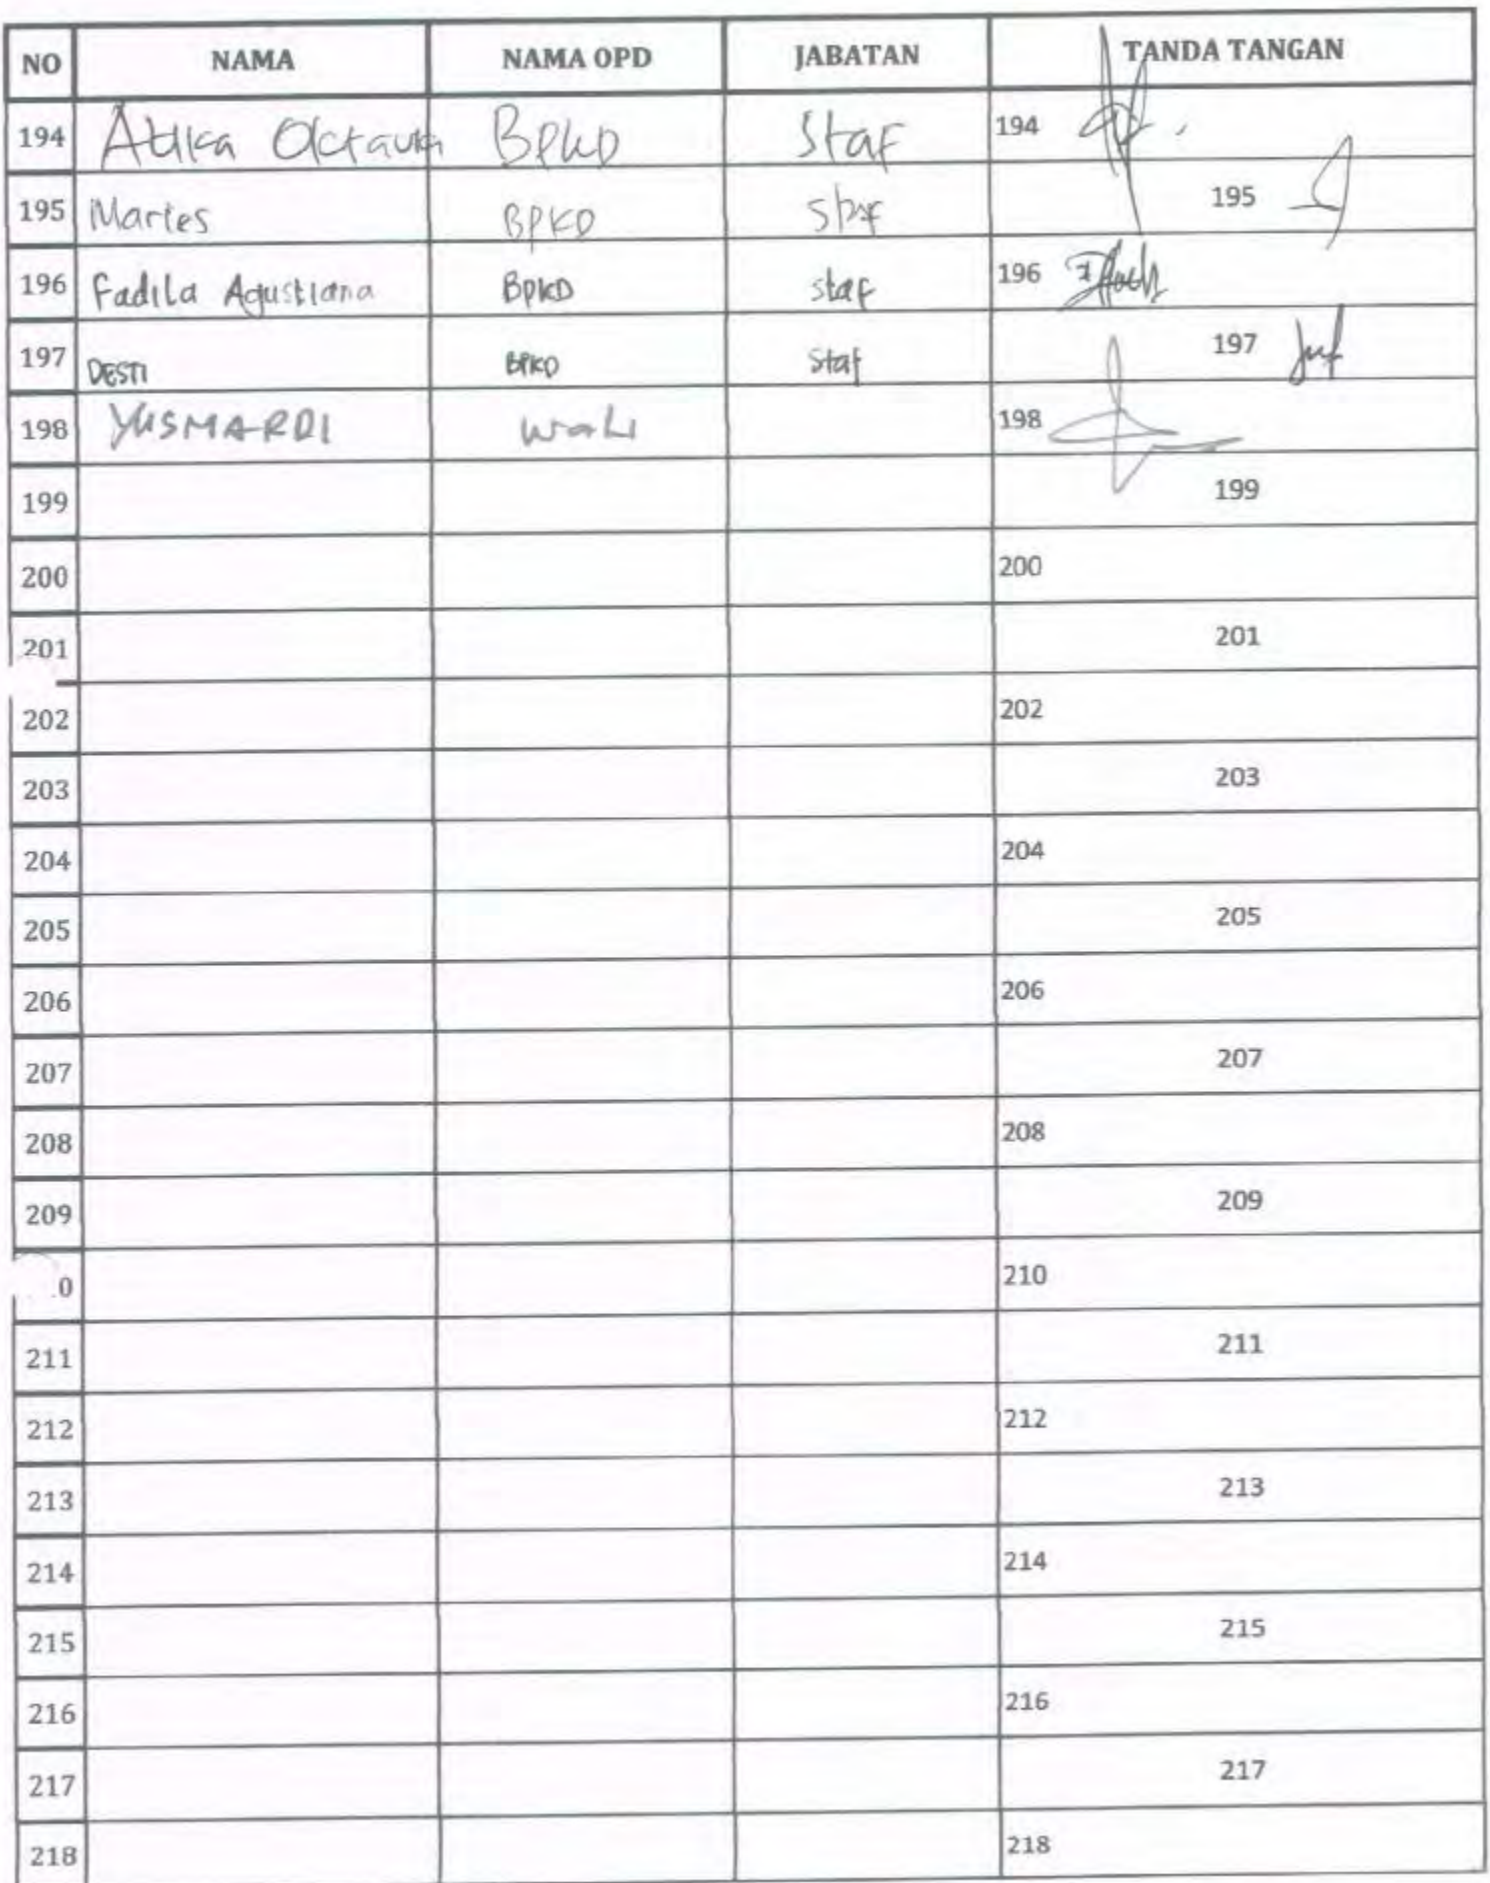 NO NAMA NAMA OPD JABATAN TANDA TANGAN
194 Atika Octavia BPKD Staf 194
195 Martes BPKD Staf 195
196 Fadila Agustiana BPKD staf 196
197 DESTI BPKD Staf 197
198 YUSMARDI 198
199 199
200 200
201 201
202 202
203 203
204 204
205 205
206 206
207 207
208 208
209 209
0 210
211 211
212 212
213 213
214 214
215 215
216 216
217 217
218 218